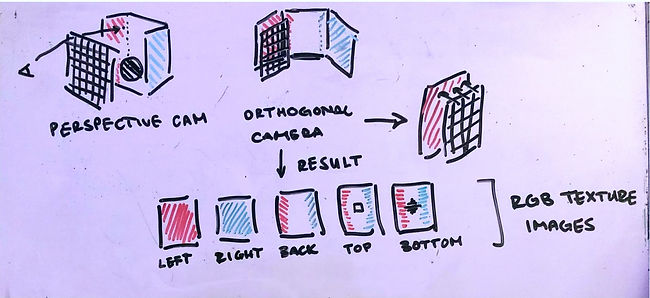 PERSPECTIVE CAM
ORTHOGONAL
CAMERA
RESULT
LEFT
RIGHT
BACK
TOP
BOTTOM
RGB TEXTURE
IMAGES